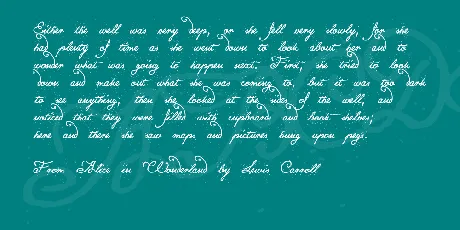 Either the well was very deep, or she fell very slowly, for she
had plenty of time as she went down to look about her and to
wonder what was going to happen next. First, she tried to look
down and make out what she was coming to, but it was too dark
to see anything; then she looked at the sides of the well, and
noticed that they were filled with cupboards and book-shelves;
here and there she saw maps and pictures hung upon pegs.
From Alice in Wonderland by Lewis Carroll